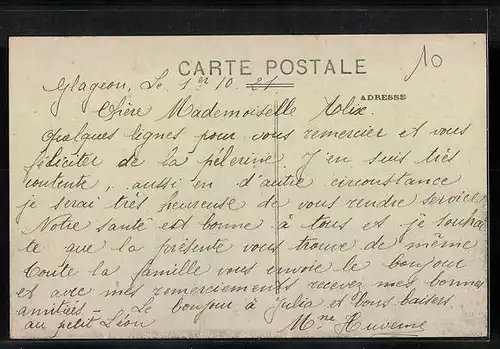 CARTE POSTALE
10
Glageon, Le 1er 10. 21.
ADRESSE
Chère Mademoiselle Alix.
Quelques lignes pour vous remercier et vous
féliciter de la pélerine. J'en suis très
contente, aussi en d'autre circonstance
je serai très heureuse de vous rendre service
Notre santé est bonne à tous et je souhai
te que la présente vous trouve de même
Toute la famille vous envoie le bonjour
et avec mes remerciements recevez mes bonnes
amitiés – Le bonjour à Julia et bons baisers
au petit Léon
Mme